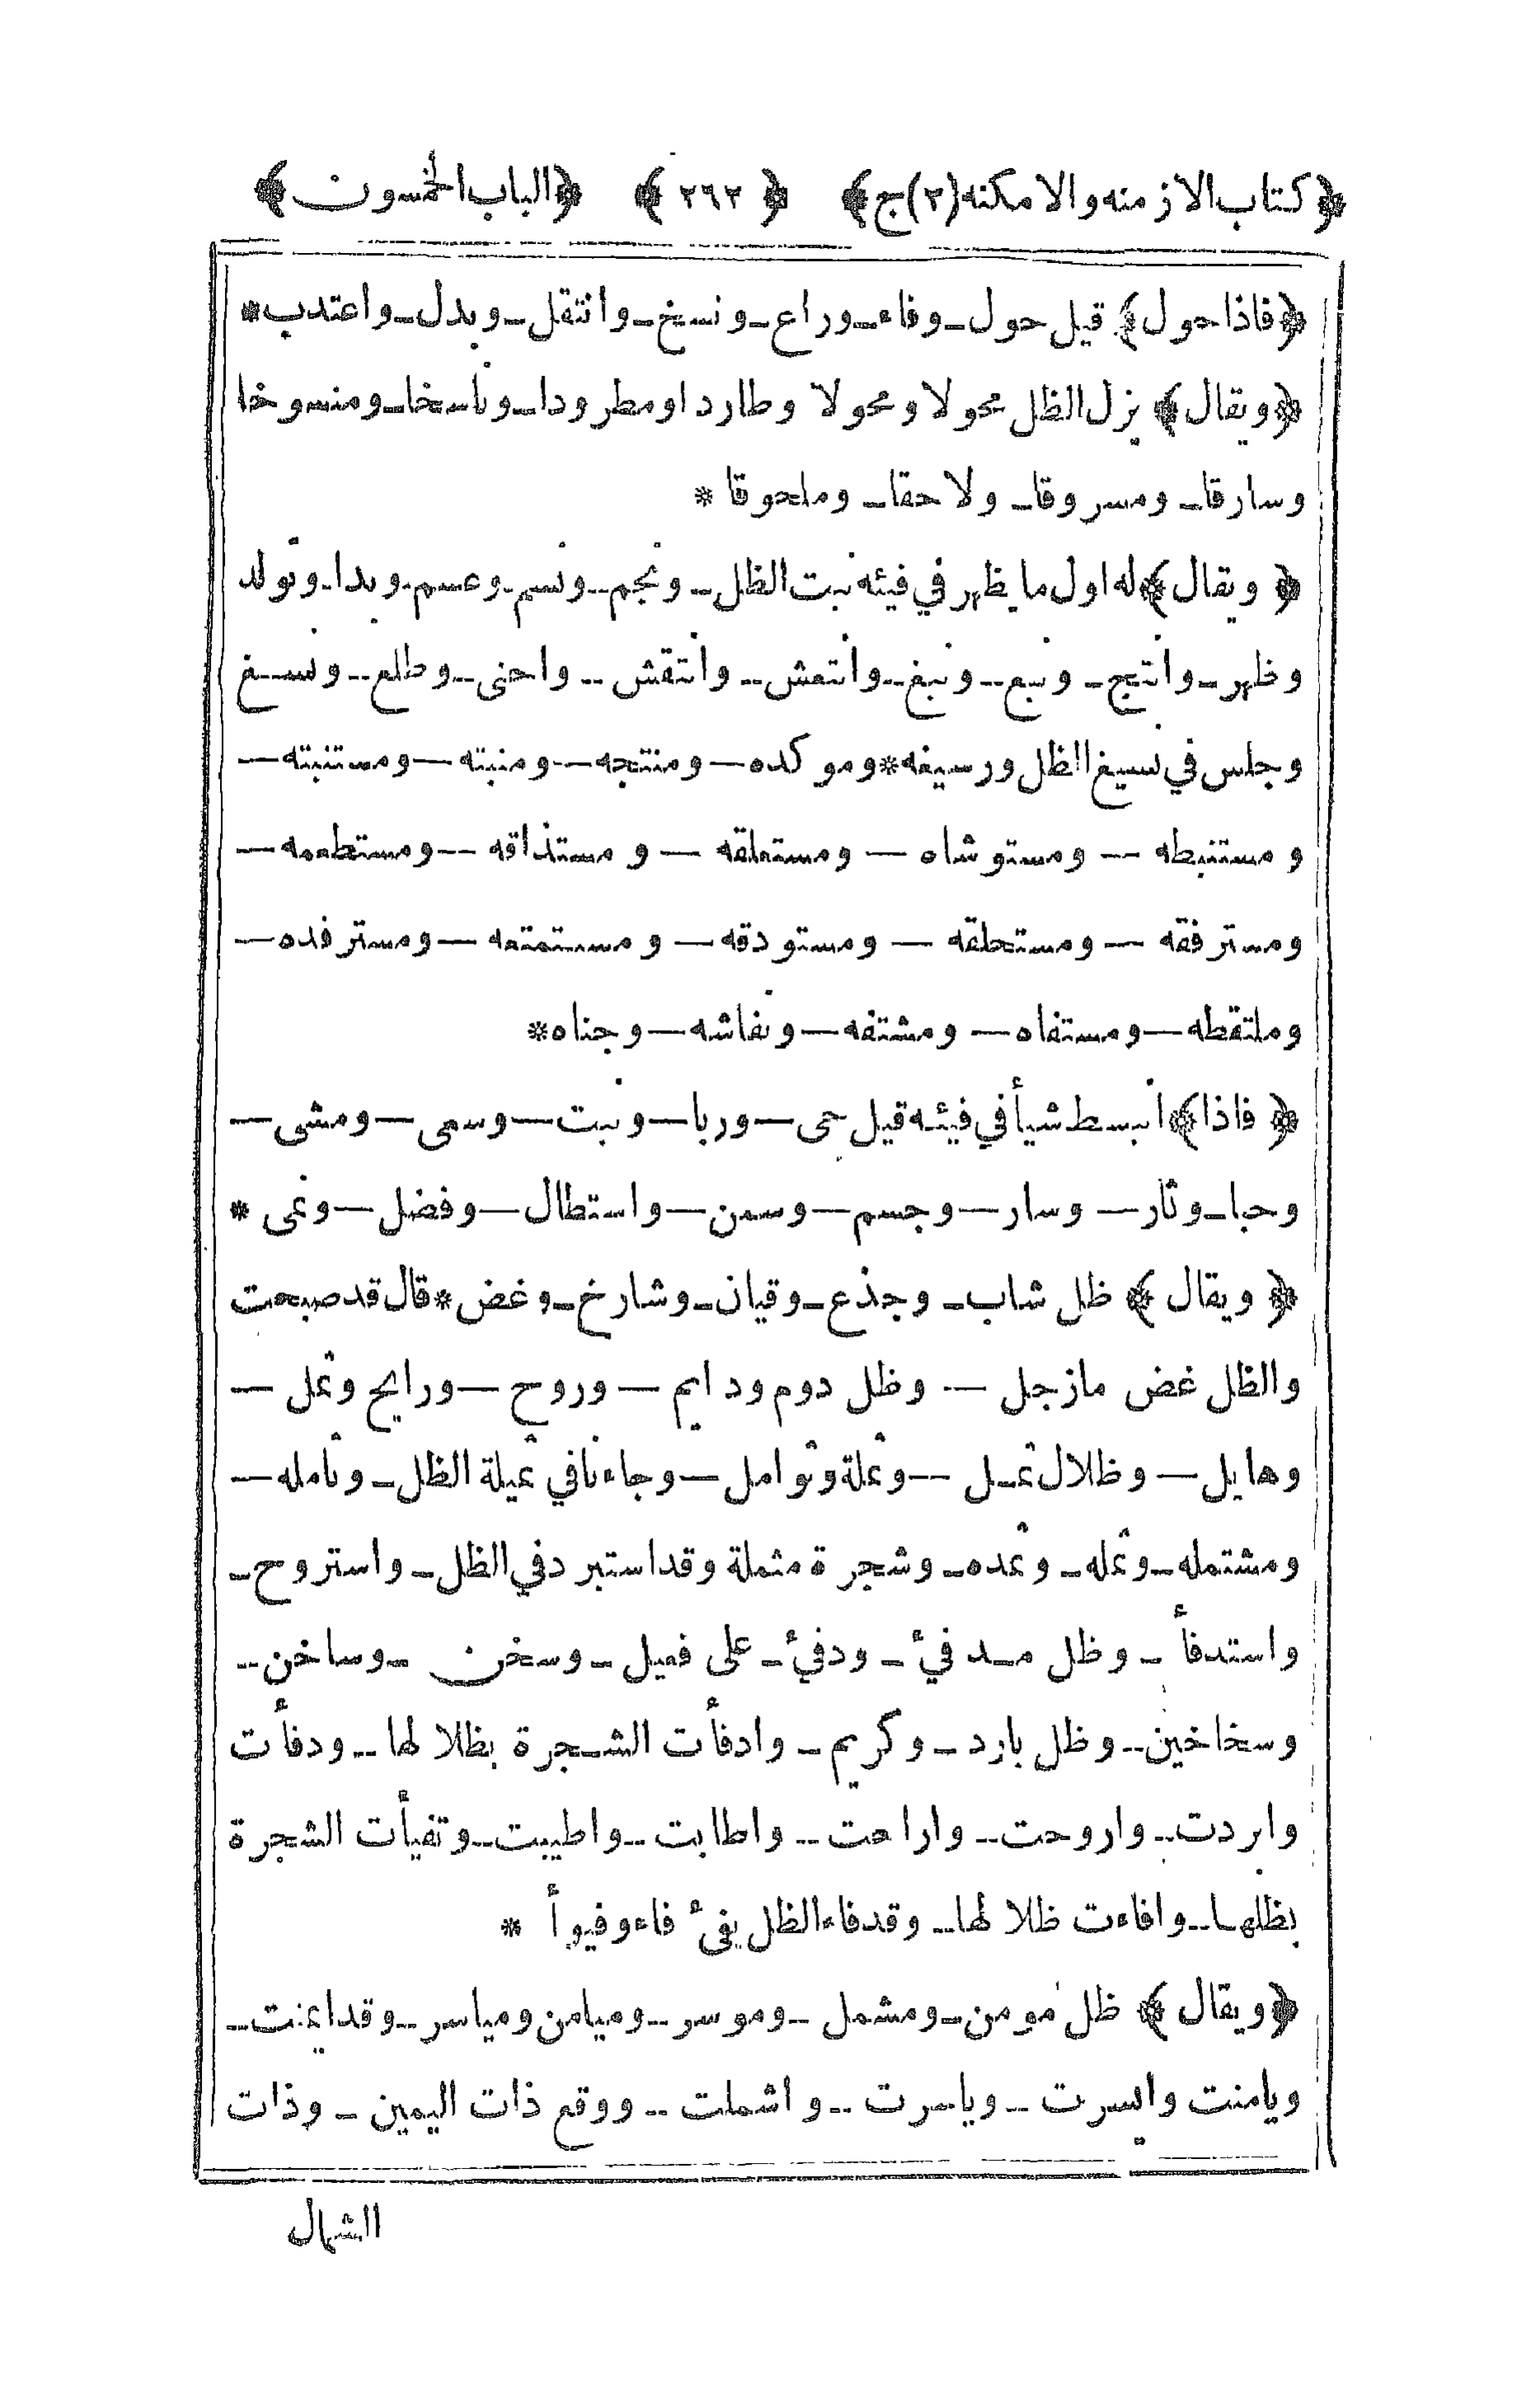 ﴿كتاب الازمنه والامكنه(٢)ج﴾ ﴿٢٦٢﴾ ﴿الباب الخمسون﴾
﴿فاذا حول﴾ قيل حول ـ وفاء ـ وراع ـ ونسخ ـ وانتقل ـ وبدل ـ واعتدب *
﴿ويقال﴾ يزل الظل محولا ومحولا وطارد اومطرودا ـ وناسخا ـ ومنسوخا
وسارقا ـ ومسروقا ـ ولاحقا ـ وملحوقا *
﴿ويقال﴾ له اول ما يظهر في فيئه نبت الظل ـ ونجم ـ ونسم ـ وعسم ـ وبدا ـ وتولد
وظهر ـ وانتج ـ ونبع ـ ونبغ ـ وانتعش ـ وانتقش ـ واحنى ـ وطلع ـ ونسغ
وجلس في نسيغ الظل ورسيغه * وموكده ـ ومنتجه ـ ومنبته ـ ومستنبته ـ
ومستنبطه ـ ومستوشاه ـ ومستعلقه ـ ومستذاقه ـ ومستطعمه ـ
ومسترفقه ـ ومستحلقه ـ ومستودقه ـ ومستمتعه ـ ومسترفده ـ
وملتقطه ـ ومستفاه ـ ومشتفه ـ ونفاشه ـ وجناه *
﴿فاذا﴾ انبسط شيأ في فيئه قيل حى ـ وربا ـ ونبت ـ وسمى ـ ومشى ـ
وحبا ـ وثار ـ وسار ـ وجسم ـ وسمن ـ واستطال ـ وفضل ـ ونمى *
﴿ويقال﴾ ظل شاب ـ وجذع ـ وقيان ـ وشارخ ـ وغض * قال قد صبحت
والظل غض مازجل ـ وظل دوم ودايم ـ وروح ـ ورايح وثمل ـ
وهايل ـ وظلال ثمل ـ وثملة وثوامل ـ وجاءنا في ثميلة الظل ـ وثامله ـ
ومشتمله ـ وثمله ـ وثمده ـ وشجرة مثملة وقد استبرد في الظل ـ واستروح ـ
واستدفأ ـ وظل مدفئ ـ ودفئ ـ على فعيل ـ وسخن ـ وساخن ـ
وسخاخين ـ وظل بارد ـ وكريم ـ وادفأت الشجرة بظلالها ـ ودفأت
وابردت ـ واروحت ـ واراحت ـ واطابت ـ واطيبت ـ وتفيأت الشجرة
بظلها ـ وافاءت ظلالها ـ وقد فاء الظل يفئ فاء وفيوأ *
﴿ويقال﴾ ظل مومن ـ ومشمل ـ وموسر ـ وميامن ومياسر ـ وقد ايمنت ـ
ويامنت وايسرت ـ وياسرت ـ واشملت ـ ووقع ذات اليمين ـ وذات
الشمال